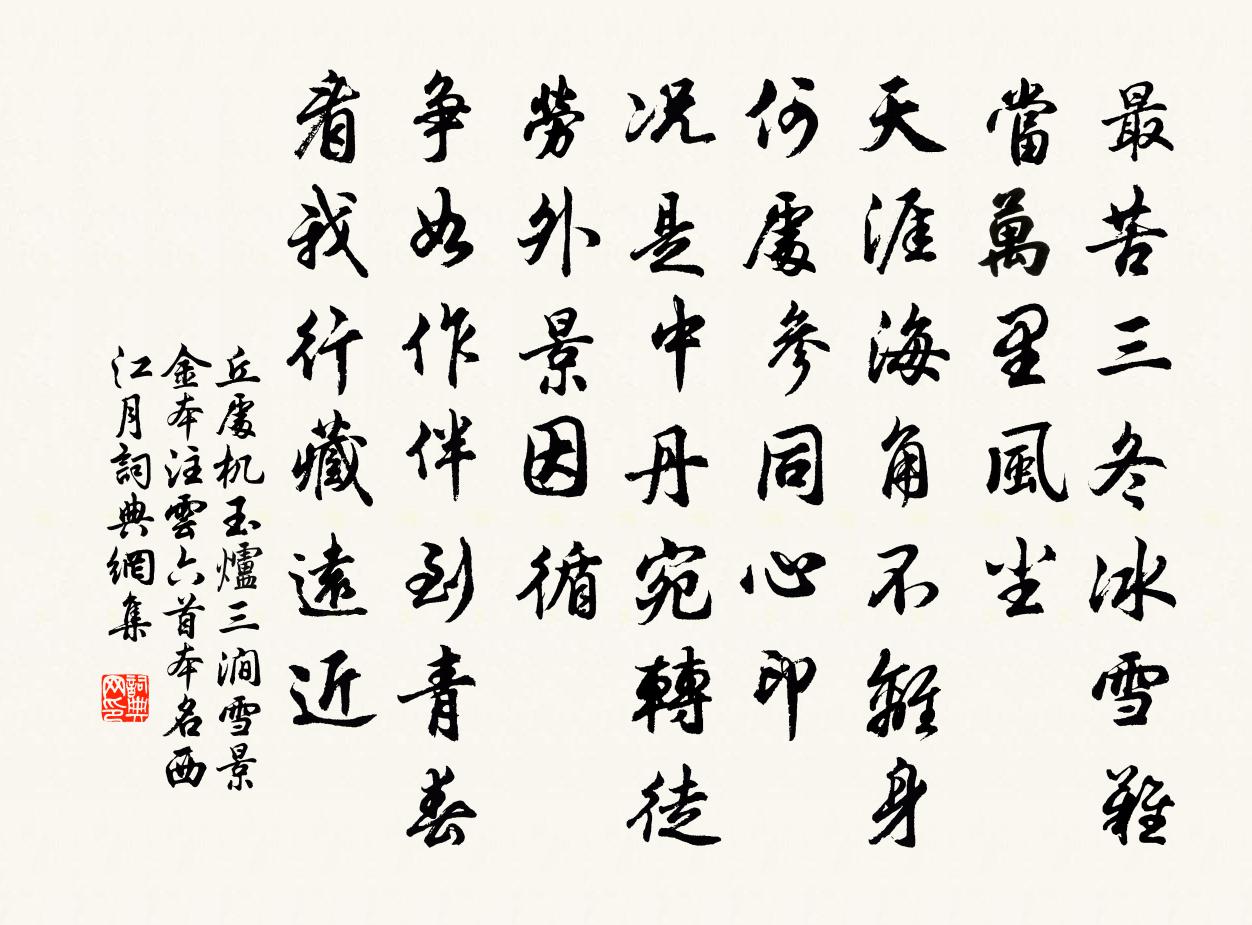 最苦三冬冰雪難
當萬里風尘
天涯海角不離身
何處參同心印
况是中丹宛轉徒
勞外景因循
争如作伴到青春
看我行藏遠近
丘處机玉爐三澗雪景
金本注雲六首本名西
江月詞典網集
詞典网印